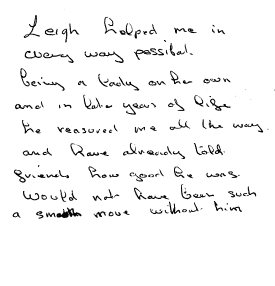 Leigh helped me in
every way possibal.
being a lady on her own
and in later years of life
he reasured me all the way.
and have already told
friends how good he was.
Would not have been such
a smooth move without him